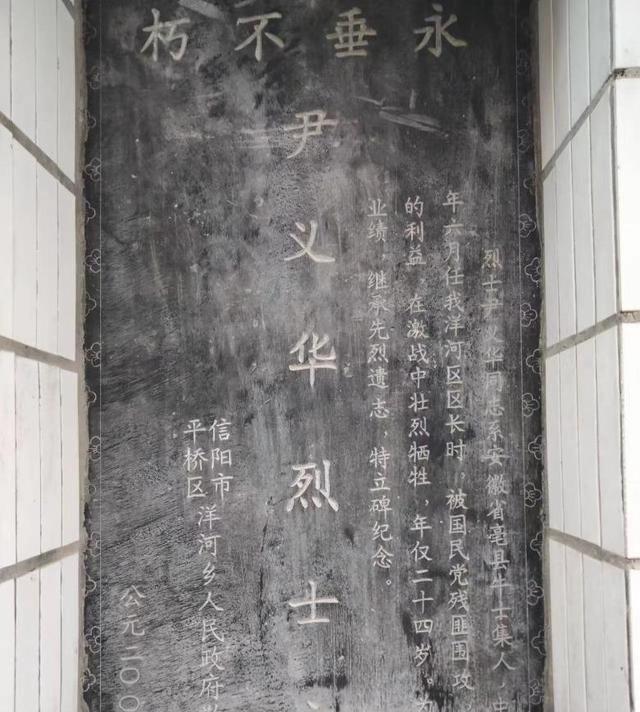 永垂不朽
烈士尹义华同志系安徽省亳县牛士集人，
年六月任我洋河区区长时，被国民党残匪围攻，
的利益，在激战中壮烈牺牲，年仅二十四岁。为
业绩，继承先烈遗志，特立碑纪念。
尹义华烈士
信阳市
平桥区
洋河乡人民政府
公元二〇〇